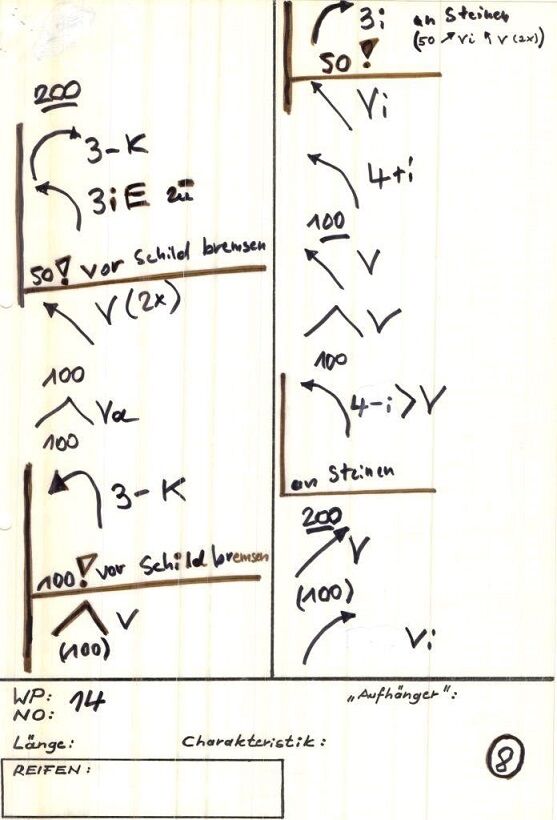 200
3-K
3iE zü
50! vor Schild bremsen
V (2x)
100
Va
100
3-K
100! vor Schild bremsen
V
(100)
3i an Steinen
(50 ↗ Vi ↖ V (2x))
50!
Vi
4+i
100
V
V
100
4-i > V
an Steinen
200
V
(100)
Vi
WP: 14
NO:
„Aufhänger":
Länge:
Charakteristik:
8
REIFEN: